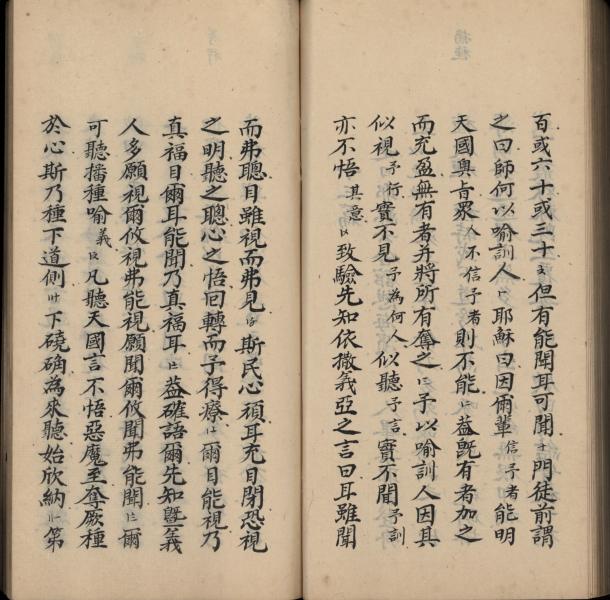 百或六十或三十但有能聞耳可聞十門徒前謂
之曰師何以喻訓人耶穌曰因爾輩信予者能明
天國奧旨眾人不信予者則不能益既有者加之
而充盈無有者并將所有奪之予以喻訓人因其
似視予行實不見予為何人似聽予言實不聞予訓
亦不悟其意致驗先知依撒義亞之言曰耳雖聞
而弗聰目雖視而弗見斯民心頑耳充目閉恐視
之明聽之聰心之悟回轉而予得療爾目能視乃
真福目爾耳能聞乃真福耳益確語爾先知曁義
人多願視爾攸視弗能視願聞爾攸聞弗能聞爾
可聽播種喻義凡聽天國言不悟惡魔至奪厥種
於心斯乃種下道側下磽确為來聽始欣納第